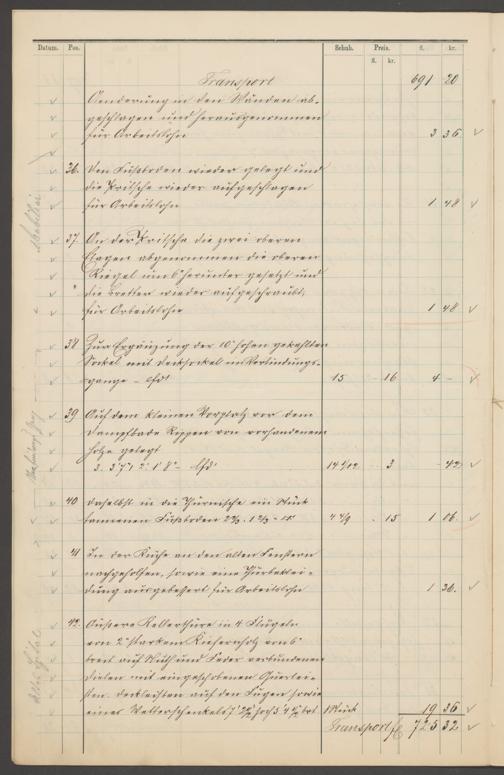 Datum. Pos. Schuh. Preis. fl. kr.
fl. kr.
Transport 691 20
Aenderung in den Wänden ab-
geschlagen und herausgenommen
für Arbeitslohn 3 36
36. Den Fußboden wieder gelegt und
die Pritsche wieder aufgeschlagen
für Arbeitslohn 1 48
37. An der Pritsche die zwei oberen
Etagen abgenommen die oberen
Riegel um 6" herunter gesetzt und
die Bretter wieder aufgeschraubt,
für Arbeitslohn 1 48
38 Zur Ergänzung der 10" hohen gekehlten
Sockel mit Decksockel im Verbindungs-
gange – lfd' 15 16 4 –
39 Auf dem kleinen Vorplatz vor dem
Dampfbade Rippen von vorhandenem
Holze gelegt
lfd' 3 42
40 daselbst in die Thürnische ein Stück
tannenen Fußboden 4 4/9 15 1 06
41 In der Küche an den alten Fenstern
nachgeholfen, sowie eine Thürbeklei-
dung ausgebessert für Arbeitslohn 1 36.
42. Aeussere Kellerthüre in 4 Flügeln
von 2" starkem Kiefernholz
breit auf Nuth und Feder verbundenen
Dielen mit eingeschobenen Querlei-
sten, Deckleisten auf den Fugen sowie
eines Wetterschenkels hoch brt 1 Stück 19 36
Transport f 725 32